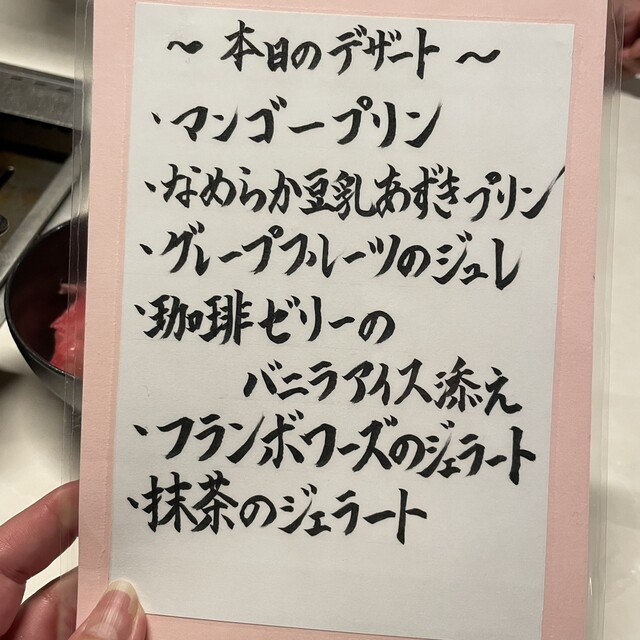 ～ 本日のデザート ～
・マンゴープリン
・なめらか豆乳あずきプリン
・グレープフルーツのジュレ
・珈琲ゼリーの
バニラアイス添え
・フランボワーズのジェラート
・抹茶のジェラート